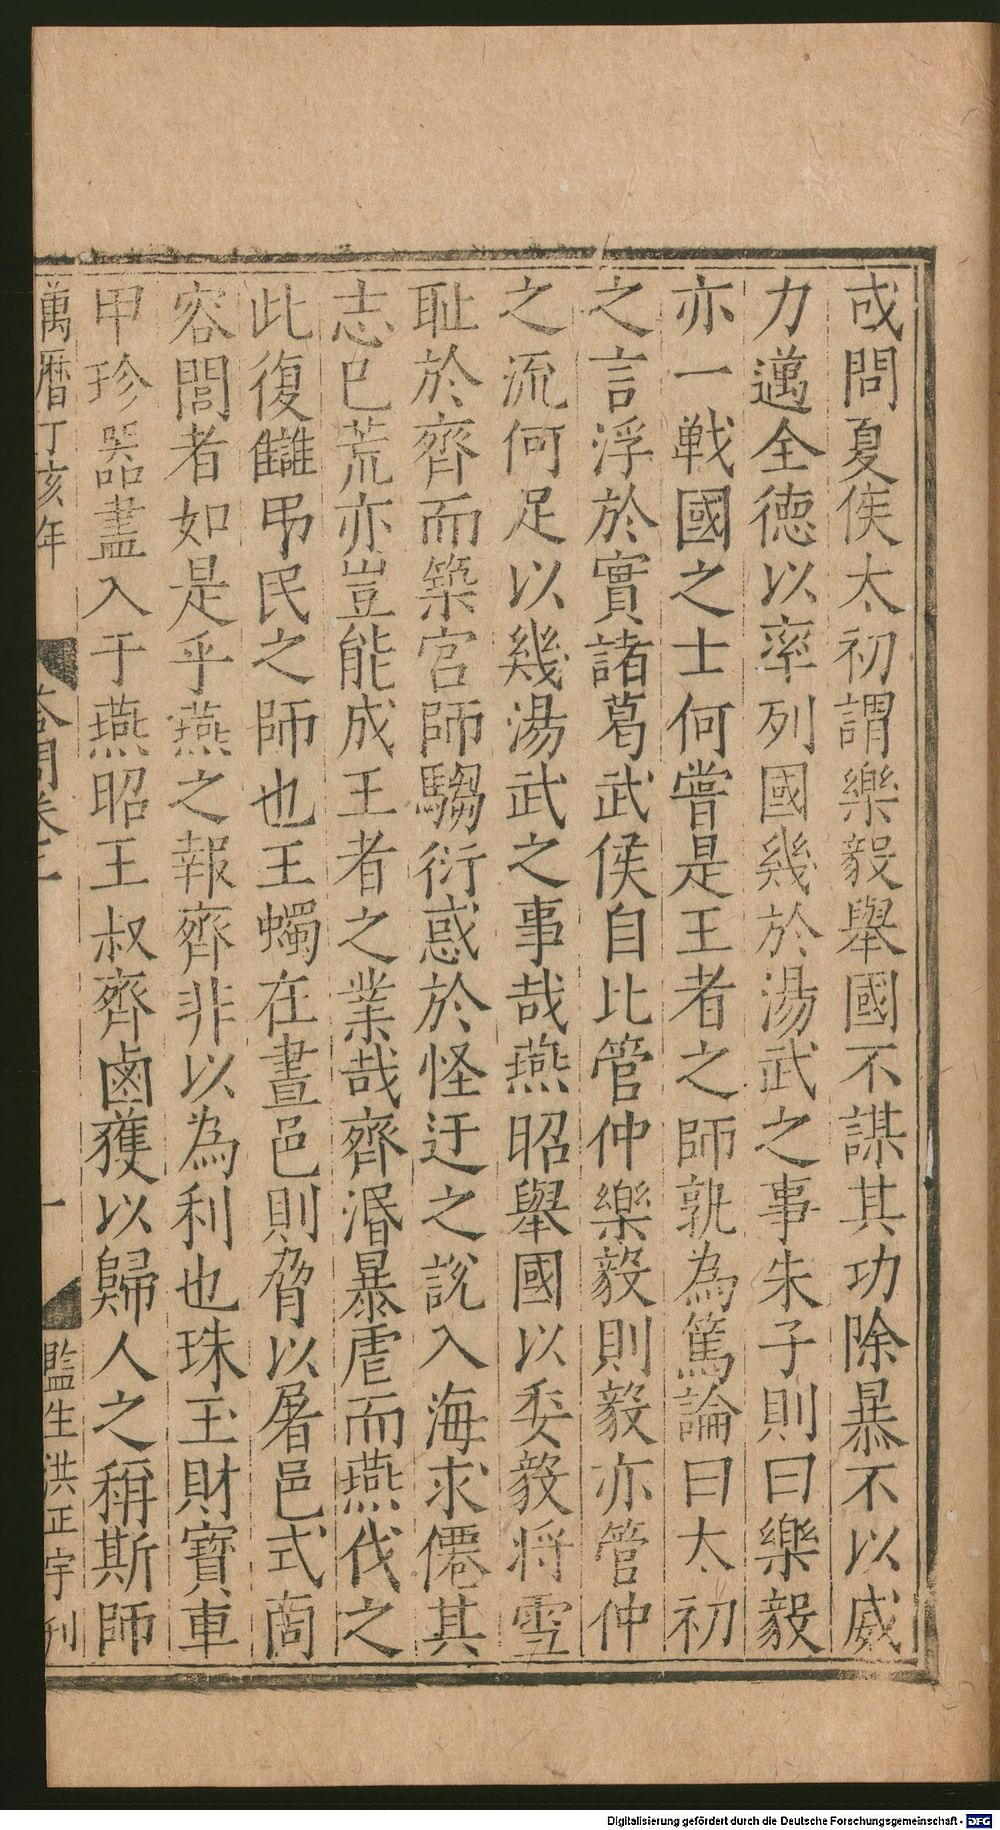 或問夏侯太初謂樂毅舉國不謀其功除暴不以威
力邁全德以率列國幾於湯武之事朱子則曰樂毅
亦一戰國之士何嘗是王者之師孰為篤論曰太初
之言浮於實諸葛武侯自比管仲樂毅則毅亦管仲
之流何足以幾湯武之事哉燕昭舉國以委毅將雪
耻於齊而築宮師騶衍惑於怪迂之說入海求僊其
志已荒亦豈能成王者之業哉齊湣暴虐而燕伐之
此復讎弔民之師也王蠋在晝邑則脅以屠邑式商
容閭者如是乎燕之報齊非以為利也珠玉財寶車
甲珍器盡入于燕昭王叔齊鹵獲以歸人之稱斯師
萬曆丁亥年 答問卷三 一 監生洪正宇刊
Digitalisierung gefördert durch die Deutsche Forschungsgemeinschaft - DFG